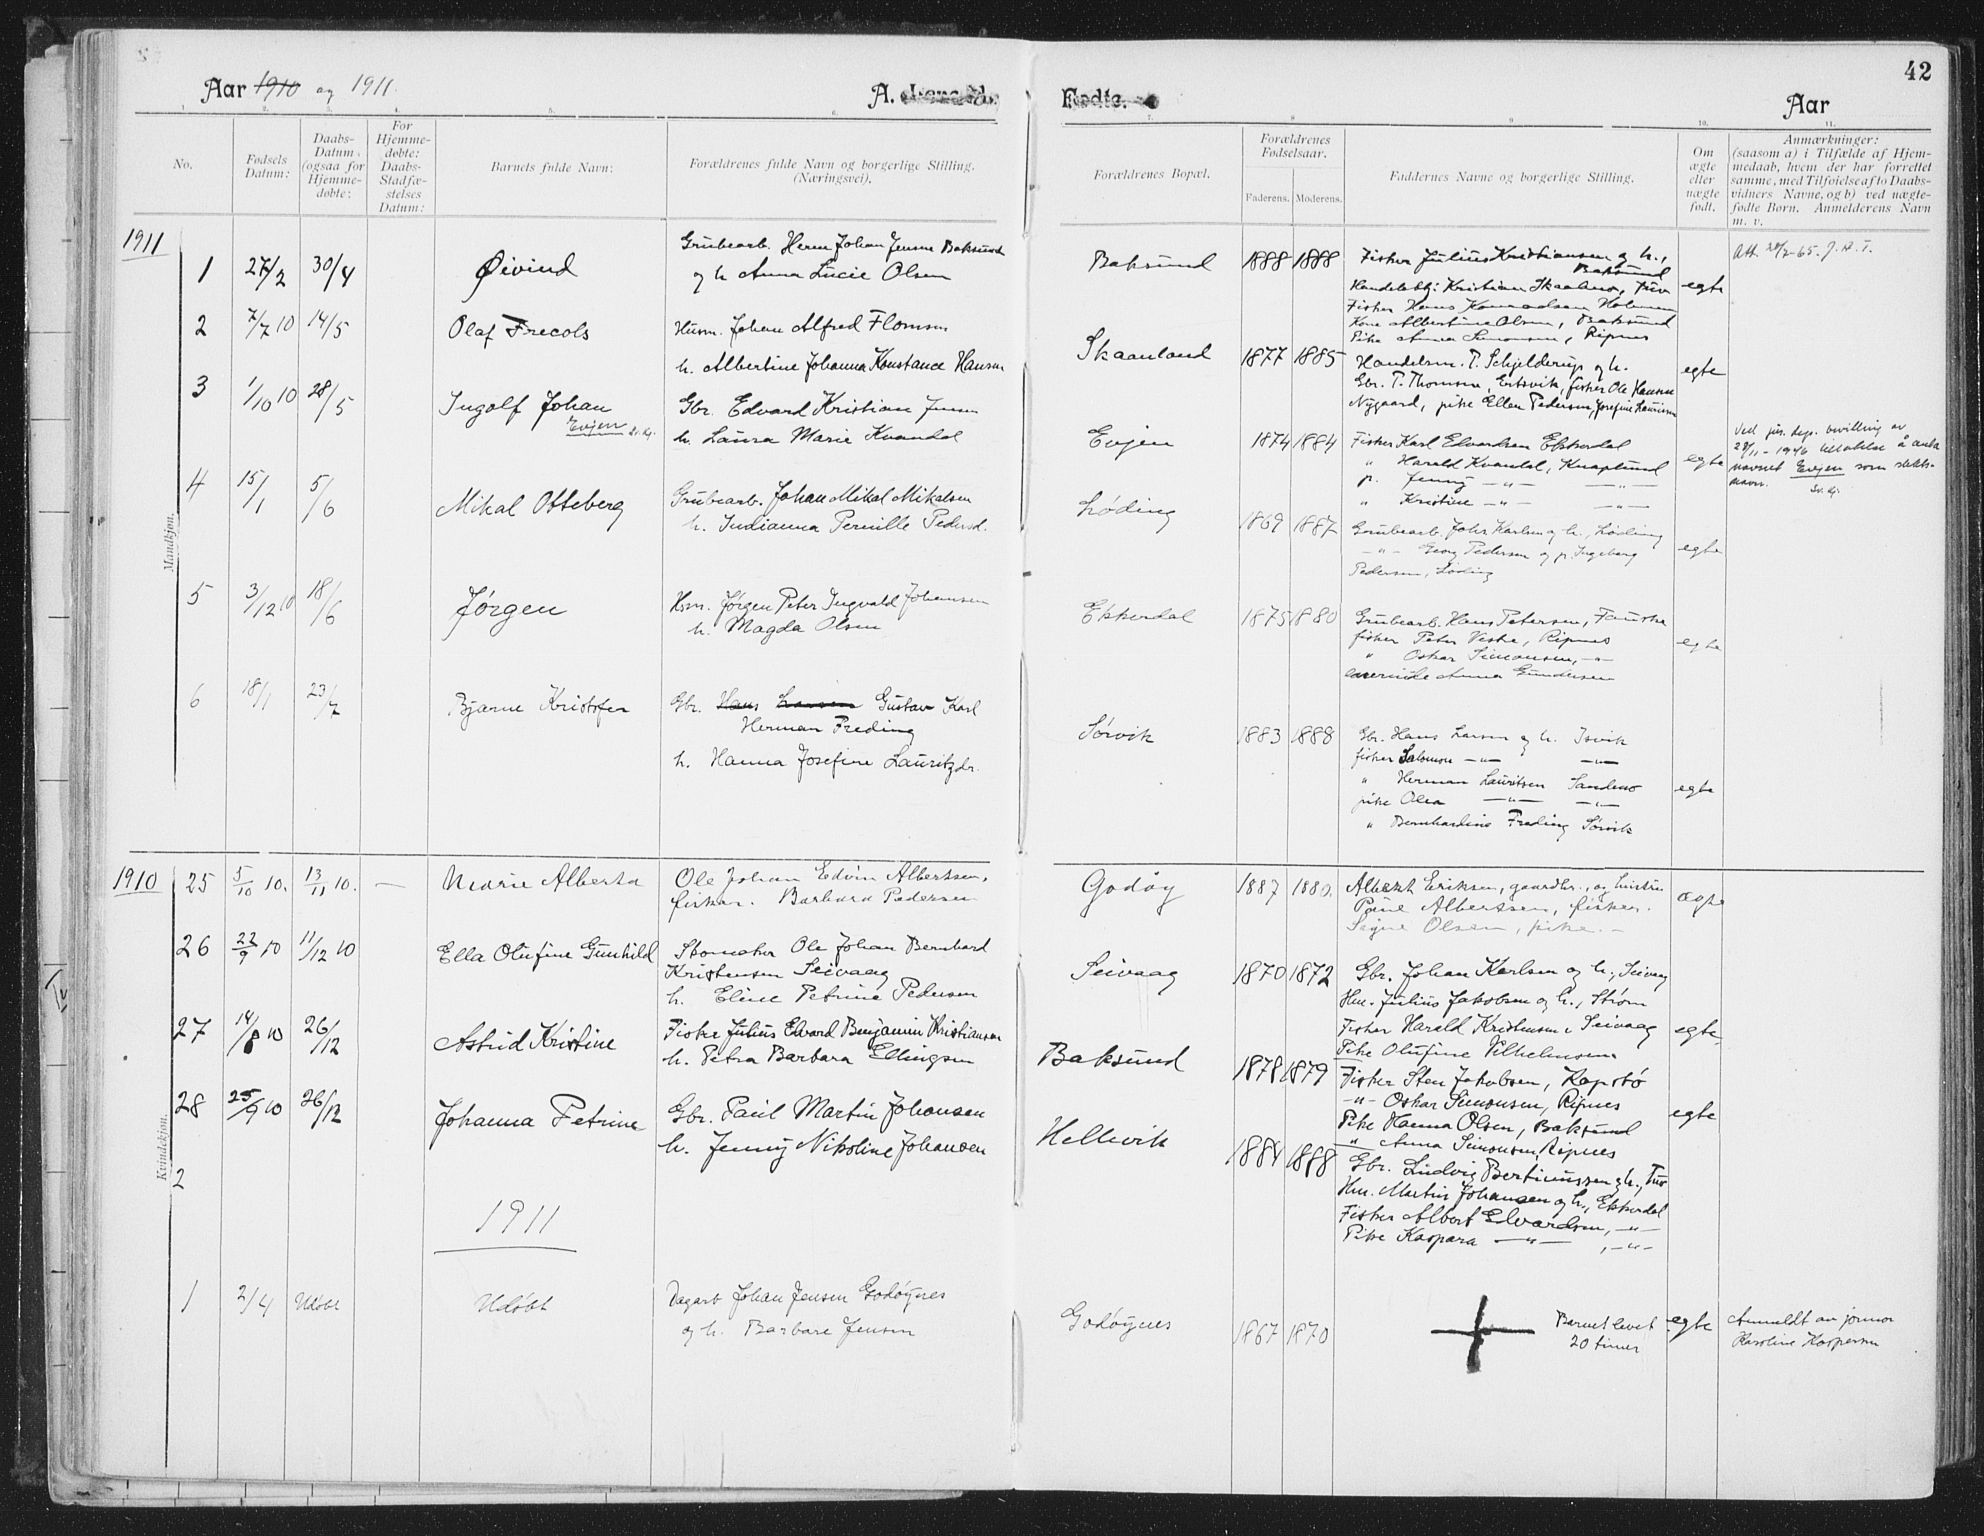 Aar 1910 og 1911.
A.
Fødte.
Aar
42
No.
Fødsels Datum:
Daabs-Datum (ogsaa for Hjemme-døbte:
For Hjemme-døbte: Daabs-Stadfæ-stelses Datum:
Barnets fulde Navn:
Forældrenes fulde Navn og borgerlige Stilling. (Næringsvei).
Forældrenes Bopæl.
Forældrenes Fødselsaar.
Faderens. Moderens.
Faddernes Navne og borgerlige Stilling.
Om ægte eller uægte født.
Anmærkninger:
(saasom a) i Tilfælde af Hjem-
medaab, hvem der har forrettet
samme, med Tilføielse af to Daabs-
vidners Navne, og b) ved uægte-
fødte Børn. Anmelderens Navn
m. v.
Mandkjøn.
1911
1 27/2 30/4 Øivind
Grubearb. Herm Johan Jensen Baksund
og h. Anna Lucie Olsen
Baksund 1888 1888
Fisker Julius Kristiansen og h.,
Baksund
Kristian Skaalnes,
Fisker Hans
Kone Albertine Olsen, Baksund
Pike Anna Simonsen, Ripnes
egte
2 7/7 10 14/5 Olaf Frecols
Husm. Johan Alfred Flomsen
h. Albertine Johanna Konstance Hansen
Skaanland 1877 1885
Handelsm. P. Schjelderup og h.
Gbr. T. Thomsen, Ertsvik, fisker Ole Hansen
Nygaard, pike Ellen Pedersen, Josefine Lauritsen
egte
3 1/10 10 28/5 Ingolf Johan
Evjen
Gbr. Edvard Kristian Jensen
h. Laura Marie Kvandal
Evjen 1874 1884
Fisker Karl Edvardsen Ekkerdal
" Harald Kvandal, Knaplund
p. Jenny -"- -"-
" Kristine -"- -"-
egte
Ved jus. dep. bevilling av
28/11-1946 tillatelse å anta
navnet Evjen som slekts-
navn.
4 15/1 5/6 Mikal Otteberg
Grubearb. Johan Mikal Mikalsen
h. Indianna Pernille Pedersd.
Løding 1869 1887
Grubearb. Johs Karlsen og h., Løding
-"- Georg Pedersen og p. Ingeborg
Pedersen, Løding
egte
5 3/12 10 18/6 Jørgen
Hsm. Jørgen Peter Ingvald Johansen
h. Magda Olsen
Ekkerdal 1875 1880
Grubearb. Hans Petersen, Fauske
fisker Peter Veske, Ripnes
" Oskar Simonsen, -"-
Anna Gundersen
egte
6 18/1 23/7 Bjarne Kristofer
Gbr. Hans Larsen Gustav Karl
Herman Freding
h. Hanna Josefine Lauritzdr.
Sørvik 1883 1888
Gbr. Hans Larsen og h. Isvik
fisker Salomon -"- -"-
" Herman Lauritsen Sandmo
pike Olea -"- -"-
" Bernhardine Freding Sørvik
egte
Kvindekjøn.
1910
25 5/10 10. 13/11 10. — Marie Alberta
Ole Johan Edvin Albertsen,
fisker. Barbara Pedersen
Godøy 1887 1880.
Albert Eriksen, gaardbr., og hustru
Albertsen, fisker.
Signe Olsen, pike. -
ægte
26 22/9 10 11/12 10 Ella Olufine Gunhild
Skomaker Ole Johan Bernhard
Kristensen Seivaag
h. Eline Petrine Pedersen
Seivaag 1870 1872
Gbr. Johan Karlsen og h., Seivaag
Hm. Julius Jakobsen og h., Strøm
Fisker Harald Kristensen, Seivaag
Pike Olufine Vilhelmsen
egte,
27 14/8 10 26/12 Astrid Kristine
Fisker Julius Edvard Benjamin Kristiansen
h. Petra Barbara Ellingsen
Baksund 1878 1879
Fisker Sten Jakobsen, Kapstø
-"- Oskar Simonsen, Ripnes
Pike Hanna Olsen, Baksund
" Anna Simonsen, Ripnes
egte
28 25/9 10 26/12 Johanna Petrine
Gbr. Paul Martin Johansen
h. Jenny Nikoline Johansen
Hellevik 1884 1888
Gbr. Ludvig Bertinussen og h.,
Hm. Martin Johansen og h., Ekkerdal
Fisker Albert Edvardsen, -"-
Pike Kaspara -"- , -"-
2
1911
1 2/4 Udøbt Udøbt
Dagarb Johan Jensen Godøynes
og h. Barbara Jensen
Godøynes 1867 1870
Barnet levet
20 timer
egte
Anmeldt av jormor
Karoline Kaspersen